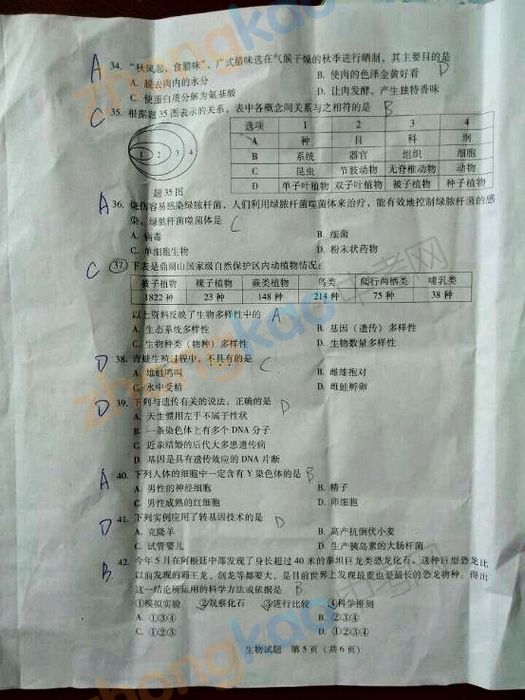 A 34. "秋风起，食腊味"，广式腊味选在气候干燥的秋季进行晒制，其主要目的是 D
A. 脱去肉内的水分 B. 使肉的色泽金黄好看
C. 使蛋白质分解为氨基酸 D. 让肉发酵，产生独特香味
C 35. 根据题 35 图表示的关系，表中各概念间关系与之相符的是 B
1 2 3 4
题 35 图
选项 1 2 3 4
A 种 目 科 纲
B 系统 器官 组织 细胞
C 昆虫 节肢动物 无脊椎动物 动物
D 单子叶植物 双子叶植物 被子植物 种子植物
A 36. 烧伤容易感染绿脓杆菌，人们利用绿脓杆菌噬菌体来治疗，能有效地控制绿脓杆菌的感
染。绿脓杆菌噬菌体是 C
A. 病毒 B. 细菌
C. 单细胞生物 D. 粉末状药物
C 37. 下表是鼎湖山国家级自然保护区内动植物情况：
被子植物 裸子植物 蕨类植物 鸟类 爬行两栖类 哺乳类
1822 种 23 种 148 种 214 种 75 种 38 种
以上资料反映了生物多样性中的 A
A. 生态系统多样性 B. 基因（遗传）多样性
C. 生物种类（物种）多样性 D. 生物数量多样性
D 38. 青蛙生殖过程中，不具有的是 C
A. 雄蛙鸣叫 B. 雌雄抱对
C. 水中受精 D. 雌蛙孵卵
D 39. 下列与遗传有关的说法，正确的是 D
A. 天生惯用左手不属于性状
B. 一条染色体上有多个 DNA 分子
C. 近亲结婚的后代大多患遗传病
D. 基因是具有遗传效应的 DNA 片断
A 40. 下列人体的细胞中一定含有 Y 染色体的是 B
A. 男性的神经细胞 B. 精子
C. 男性成熟的红细胞 D. 卵细胞
D 41. 下列实例应用了转基因技术的是 D
A. 克隆羊 B. 高产抗倒伏小麦
C. 试管婴儿 D. 生产胰岛素的大肠杆菌
B 42. 今年 5 月在阿根廷中部发现了身长超过 40 米的泰坦巨龙类恐龙化石，这种巨型恐龙比
以前发现的霸王龙，剑龙等都要大，是目前世界上发现最重也是最长的恐龙物种。得出
这一结论所运用的科学方法或依据是 B
①模拟实验 ②观察化石 ③进行比较 ④科学推测
A. ①③④ B. ②③④
C. ①②③ D. ①②④
生物试题 第 5 页（共 6 页）
zhongkao
中考网